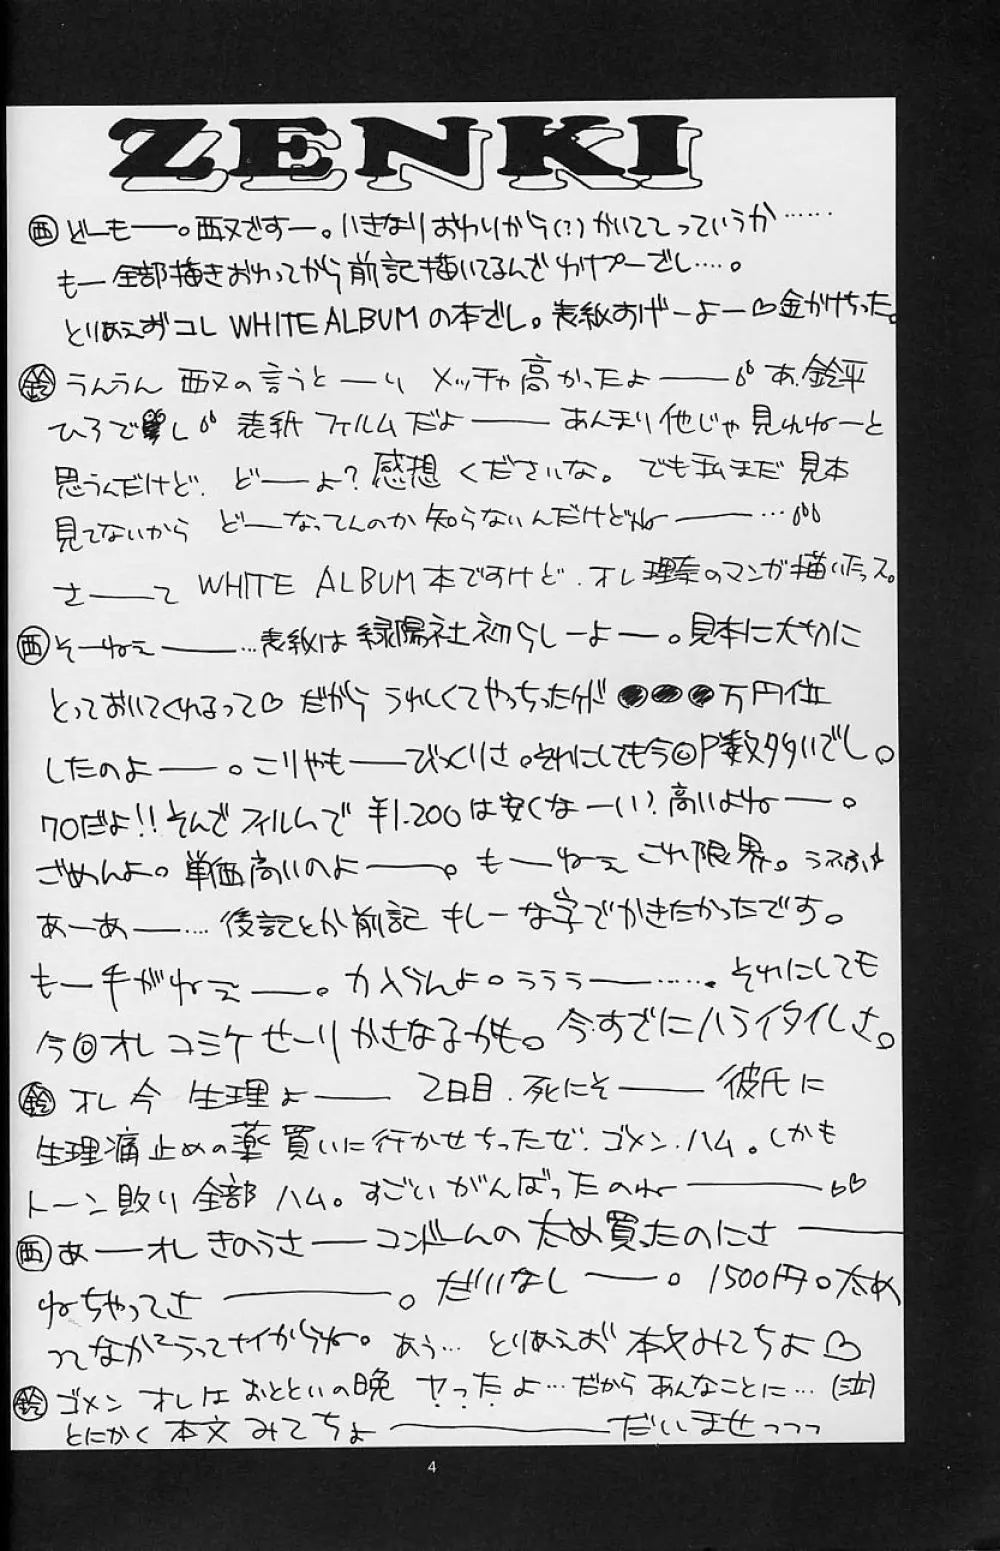 ZENKI
西 どーもー。西又ですー。いきなりおわりから(?)かいててっていうか……
もー全部描きおわってから前記描いてるんでわけプーでし…。
とりあえずコレ WHITE ALBUM の本でし。表紙すげーよー♡金かけちった。
鈴 うんうん 西又の言うとーり メッチャ高かったよー あ、鈴平
ひろでし 表紙フィルムだよー あんまり他じゃ見れねーと
思うんだけど、どーよ?感想くださいな。でも私まだ見本
見てないから どーなってんのか知らないんだけどねー…
さーて WHITE ALBUM 本ですけど、オレ理奈のマンガ描いたっス。
西 そーねぇー…表紙は緑陽社初らしーよー。見本に大切に
とっておいてくれるって♡ だから うれしくてやっちったけど ●●●万円位
したのよー。こりゃもーびっくりさ。それにしても今回P数多いでし。
70だよ!!そんでフィルムで ¥1.200は安くなーい?高いよねー。
ごめんよ。単価高いのよー。もーねぇ これ限界。
あーあー…後記とか前記 キレーな字でかきたかったです。
もー手がねぇー。力入らんよ。ううぅー……。それにしても
今回オレ コミケ せーりかさなるかも。今すでにハライタイしさ。
鈴 オレ今 生理よー 2日目、死にそー 彼氏に
生理痛止めの薬買いに行かせちったぜ、ゴメン、ハム。しかも
トーン貼り全部 ハム。すごいがんばったのねー♡♡
西 あーオレ きのうさーコンドームの太め買ったのにさー
ねちゃってさー。だいなしー。1500円。太め
ってなかなか売ってナイからね。あぅ… とりあえず本文みてちょ♡
鈴 ゴメン オレはおとといの晩 ヤったよ…だから あんなことに…(泣)
とにかく本文みてちょーだいませっっっ
4